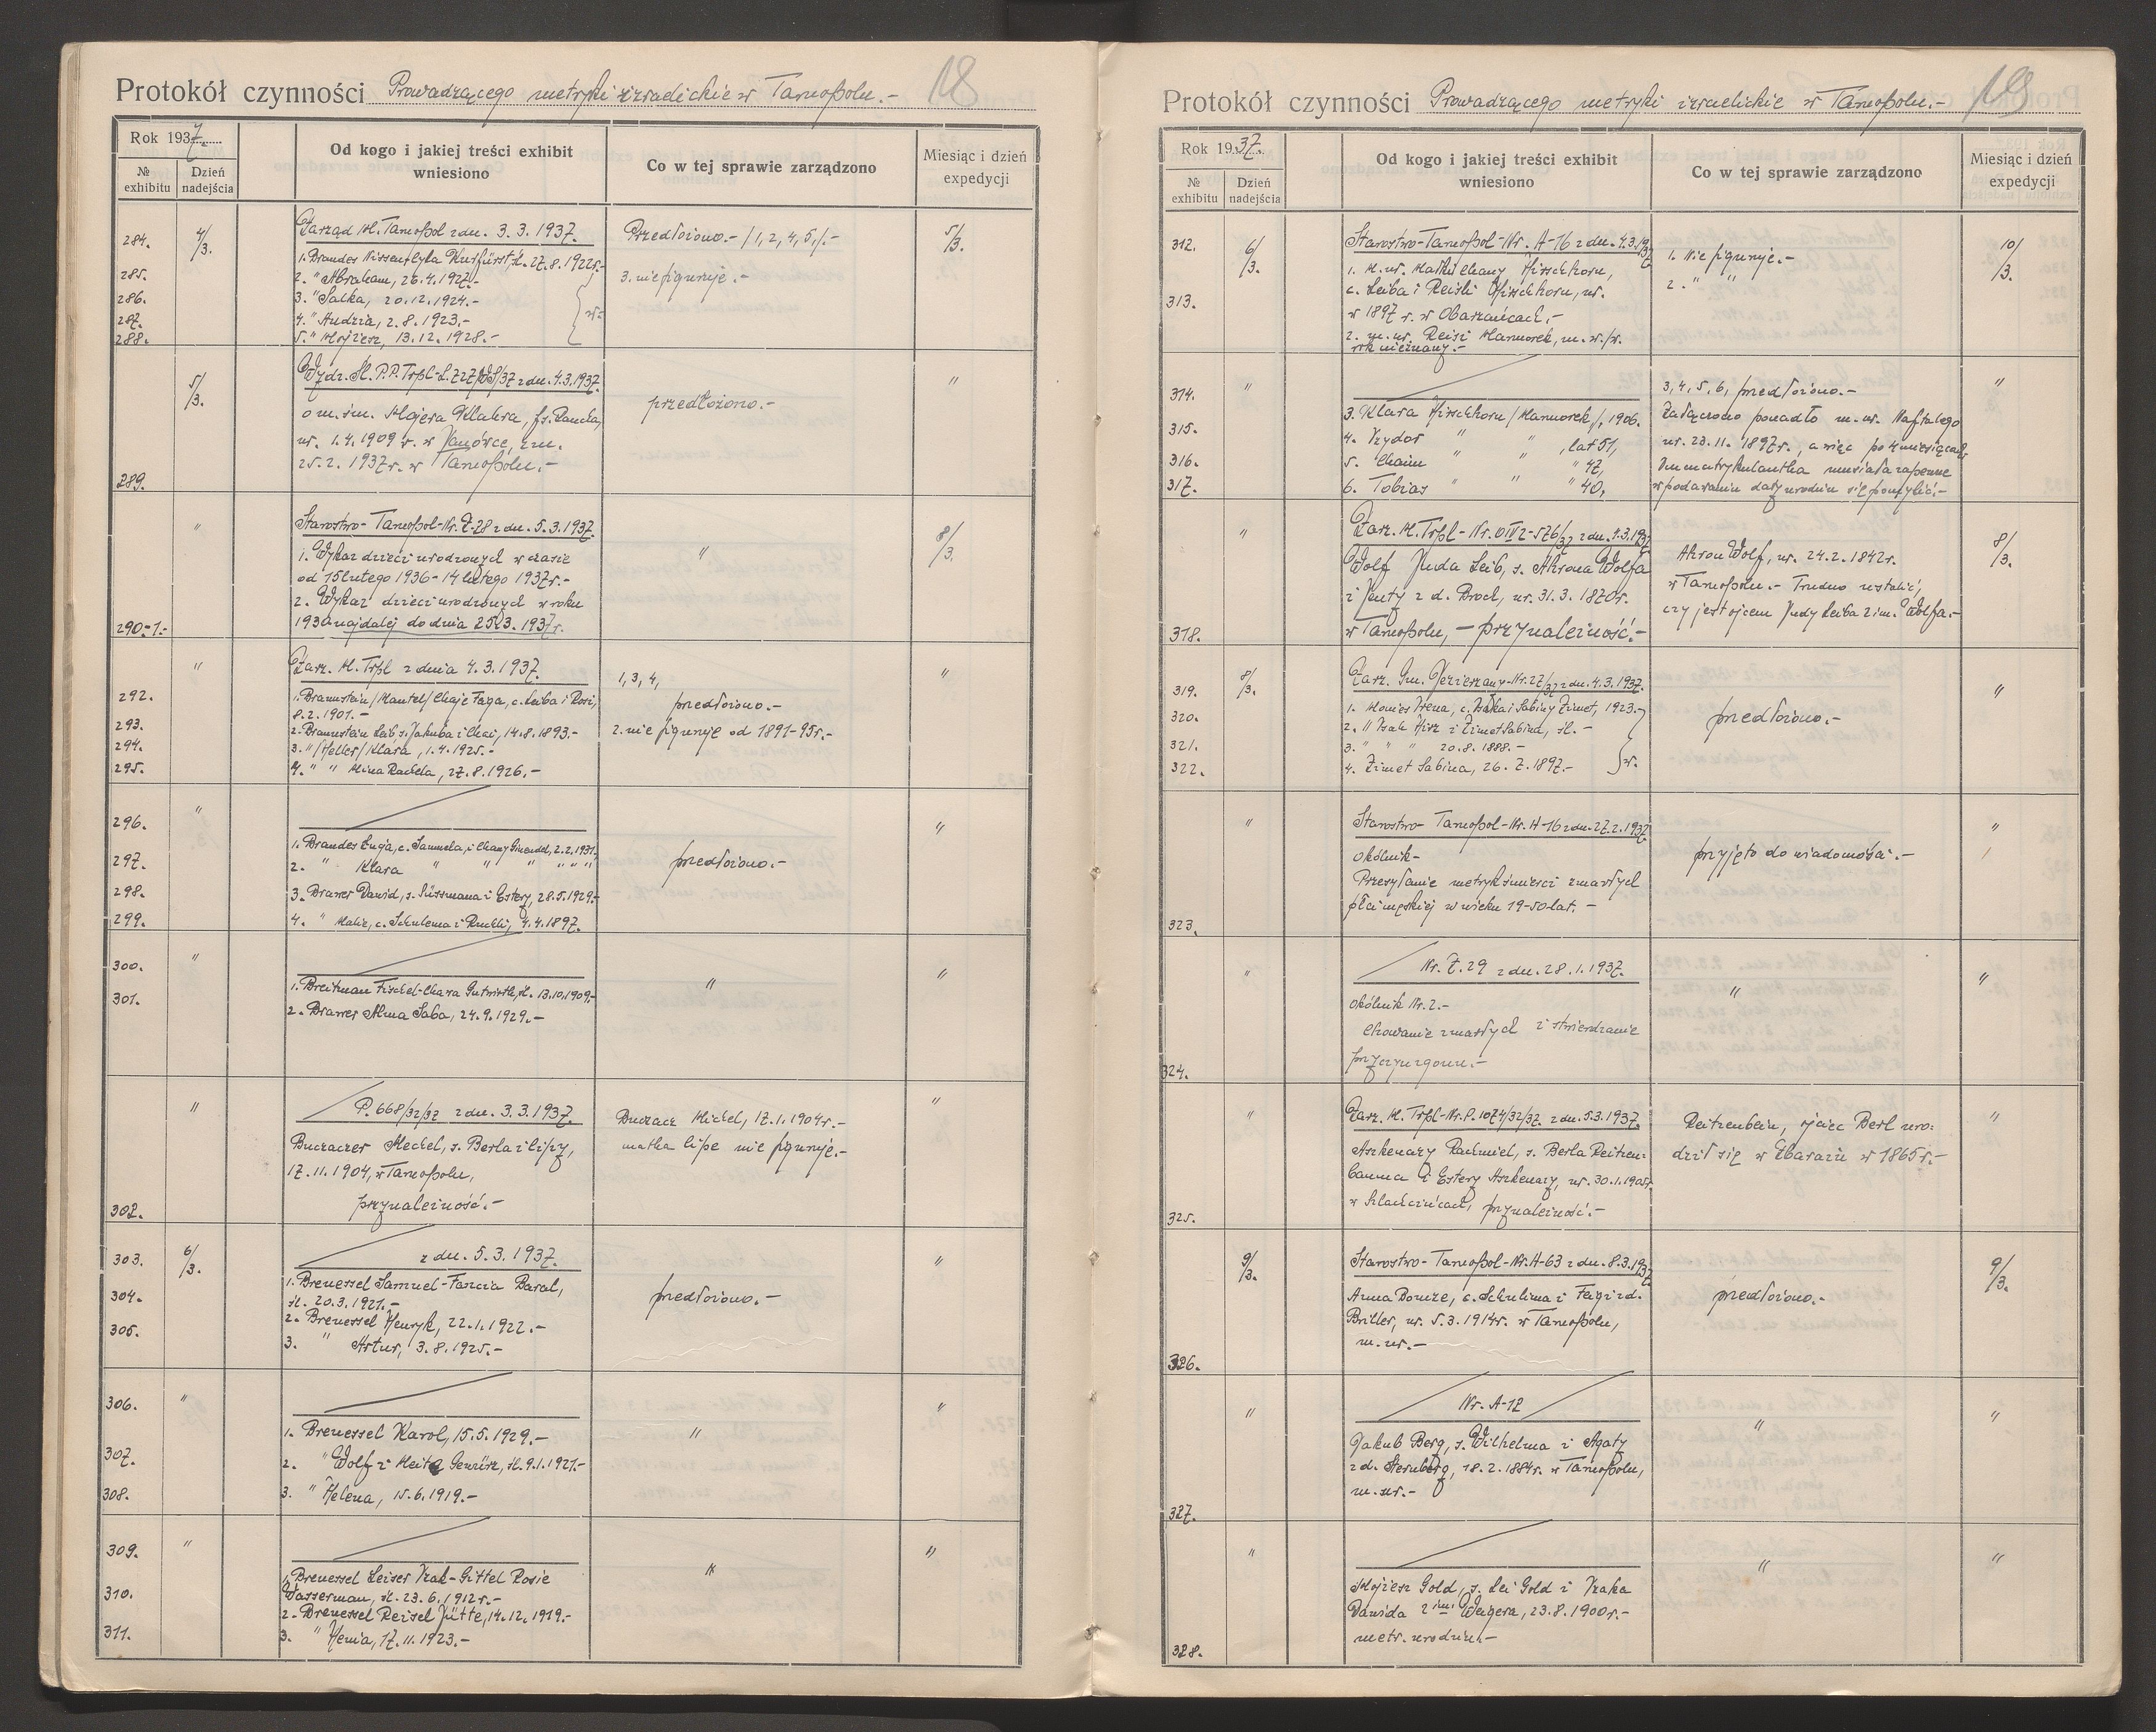 Protokół czynności Prowadzącego metryki izraelickie w Tarnopolu.- 18
Rok 1937.
№ exhibitu
Dzień nadejścia
Od kogo i jakiej treści exhibit wniesiono
Co w tej sprawie zarządzono
Miesiąc i dzień expedycji
284. 4/3. Zarząd M. Tarnopol z dn. 3.3.1937. Przedłożono.- /1, 2, 4, 5,/.- 5/3.
1. Brandes Nissen, Kurfürst, śl. 27.8.1922r.-
285. 2. " Abraham, 26.4.1927.- 3. nie figuruje.-
286. 3. " Salka, 20.12.1924.-
287. 4. " Hudzia, 2.8.1923.- w.-
288. 5. " Mojżesz, 13.12.1928.-
5/3. Wydz. Śl. P.P. Trpl-L. 727/37 z dn. 4.3.1937. "
o m. śm. Mojera Klahra, przedłożono.-
ur. 1.4.1909 r. w Janówce, zm.
25.2.1937r. w Tarnopolu.-
289.
" Starostwo-Tarnopol-Nr. Z-28 z dn. 5.3.1937. " 8/3.
1. Wykaz dzieci urodzonych w czasie
od 15 lutego 1936-14 lutego 1937r.-
2. Wykaz dzieci urodzonych w roku
290-1.- najdalej do dnia 25.3.1937r.
" Zarz. M. Trpl z dnia 4.3.1937. 1, 3, 4, "
292. 1. Braunstein/Mantel/Chaje Faga, c. Leiba i Rosi, przedłożono.-
8.2.1901.-
293. 2. Braunstein Leib s. Jakuba i Chai, 14.8.1893.- 2. nie figuruje od 1891-95r.-
294. 3. " /Heller/ Klara, 1.4.1925.-
295. 4. " " Mina Rachela, 27.8.1926.-
296. " "
1. Brandes c. Samuela, i Chany 2.2.1931.
297. 2. " Klara " " " " " " przedłożono.-
298. 3. Brawer Dawid, s. Süssmana i Estery, 28.5.1929.-
299. 4. " c. Schulema i Ruchli, 4.4.1897.
300. " " "
301. 1. Breitman Fischel-Chara Gutwirth, śl. 13.10.1909.-
2. Brawer Alma Saba, 24.9.1929.-
" P. 668/32/37 z dn. 3.3.1937. Buczacz Michel, 17.1.1904r.- "
Buczaczer Mechel, s. Berla i Lipy, matka Lipe nie figuruje.-
17.11.1904, w Tarnopolu,
302. przynależność.-
303. 6/3. z dn. 5.3.1937. "
1. Breuessel Samuel-Fancia Baral,
304. śl. 20.3.1921.- przedłożono.-
2. Breuessel Henryk, 22.1.1922.-
305. 3. " Artur, 3.8.1925.-
306. " "
1. Breuessel Karol, 15.5.1929.- "
307. 2. " Wolf i Gewürz, śl. 9.1.1921.-
308. 3. " Helena, 15.6.1919.-
309. " " "
1. Breuessel Leiser Izak-Gittel Rosie
310. Wasserman, śl. 23.6.1912r.-
2. Breuessel Reisel Jütte, 14.12.1919.-
311. 3. " Henia, 17.11.1923.-
Protokół czynności Prowadzącego metryki izraelickie w Tarnopolu.- 19
Rok 1937.
№ exhibitu
Dzień nadejścia
Od kogo i jakiej treści exhibit wniesiono
Co w tej sprawie zarządzono
Miesiąc i dzień expedycji
312. 6/3. Starostwo-Tarnopol-Nr. A-16 z dn. 4.3.1937 1. Nie figuruje.- 10/3.
1. M. ur. Malki Chany Hirschhorn, 2. " "
313. c. Leiba i Reisli Hirschhorn, ur.
w 1897 r. w Obarzańcach.-
2. m. ur. Reisi Marmorek, m. w./w.
rok nieznany.-
314. " 3, 4, 5, 6, przedłożono.- "
3. Klara Hirschhorn/Marmorek/, 1906. Załączono ponadto m. ur. Naftalego
315. 4. Izydor " " , lat 51, ur. 23.11.1897r., a więc po 4 miesiącach.
316. 5. Chaim " " " 47, Immatrykulantka musiała zapewne
317. 6. Tobias " " " 40, w podawaniu daty urodzin się pomylić.-
" Zarz. M. Trpl-Nr. IV2-576/37 z dn. 4.3.1937 8/3.
Wolf Juda Leib, s. Ahrona Wolfa Ahron Wolf, ur. 24.2.1842r.
i Jenty z d. Broch, ur. 31.3.1870r. w Tarnopolu.- Trudno ustalić,
318. w Tarnopolu, - przynależność.- czy jest ojcem Judy Leiba 2 im. Wolfa.-
319. 8/3. Zarz. Gm. Jezierzany-Nr. 27/37 z dn. 4.3.1937. "
320. 1. Monies Irena, c. Izaka i Sabiny Zimet, 1923.- przedłożono.-
2. " Izak Hirsz i Zimet Sabina, śl.-
321. 3. " " " 20.8.1888.-
322. 4. Zimet Sabina, 26.7.1897.- w.
" Starostwo-Tarnopol-Nr. H-16 z dn. 27.2.1937. "
okólnik- przyjęto do wiadomości.-
Przesyłanie metryk śmierci zmarłych
323. płci męskiej w wieku 19-50 lat.-
" Nr. Z. 29 z dn. 28.1.1937. " "
okólnik Nr. 2.-
Chowanie zmarłych i stwierdzanie
324. przyczyn zgonu.-
" Zarz. M. Trpl-Nr. P. 1074/32/37. z dn. 5.3.1937. Reitzenbein, ojciec Berl uro= "
Aszkenazy Rachmiel, s. Berla Reitzen= dził się w Zbarażu w 1865r.-
bauma i Estery Aszkenazy, ur. 30.1.1905r.
325. w Szlachcińcach, przynależność.-
9/3. Starostwo-Tarnopol-Nr. H-63 z dn. 8.3.1937 9/3.
Anna Bomze, c. Schulima i Feigi z d. przedłożono.-
Briller, ur. 5.3.1914r. w Tarnopolu,
326. m. ur.-
" Nr. A-12 " "
Jakub Berg, s. Wilhelma i Agaty
z d. Sternberg, 18.2.1884r. w Tarnopolu,
327. m. ur.-
" " "
Mojżesz Gold, s. Lei Gold i Izaka
Dawida 2 im. Weigera, 23.8.1900r.-
328. metr. urodzin.-